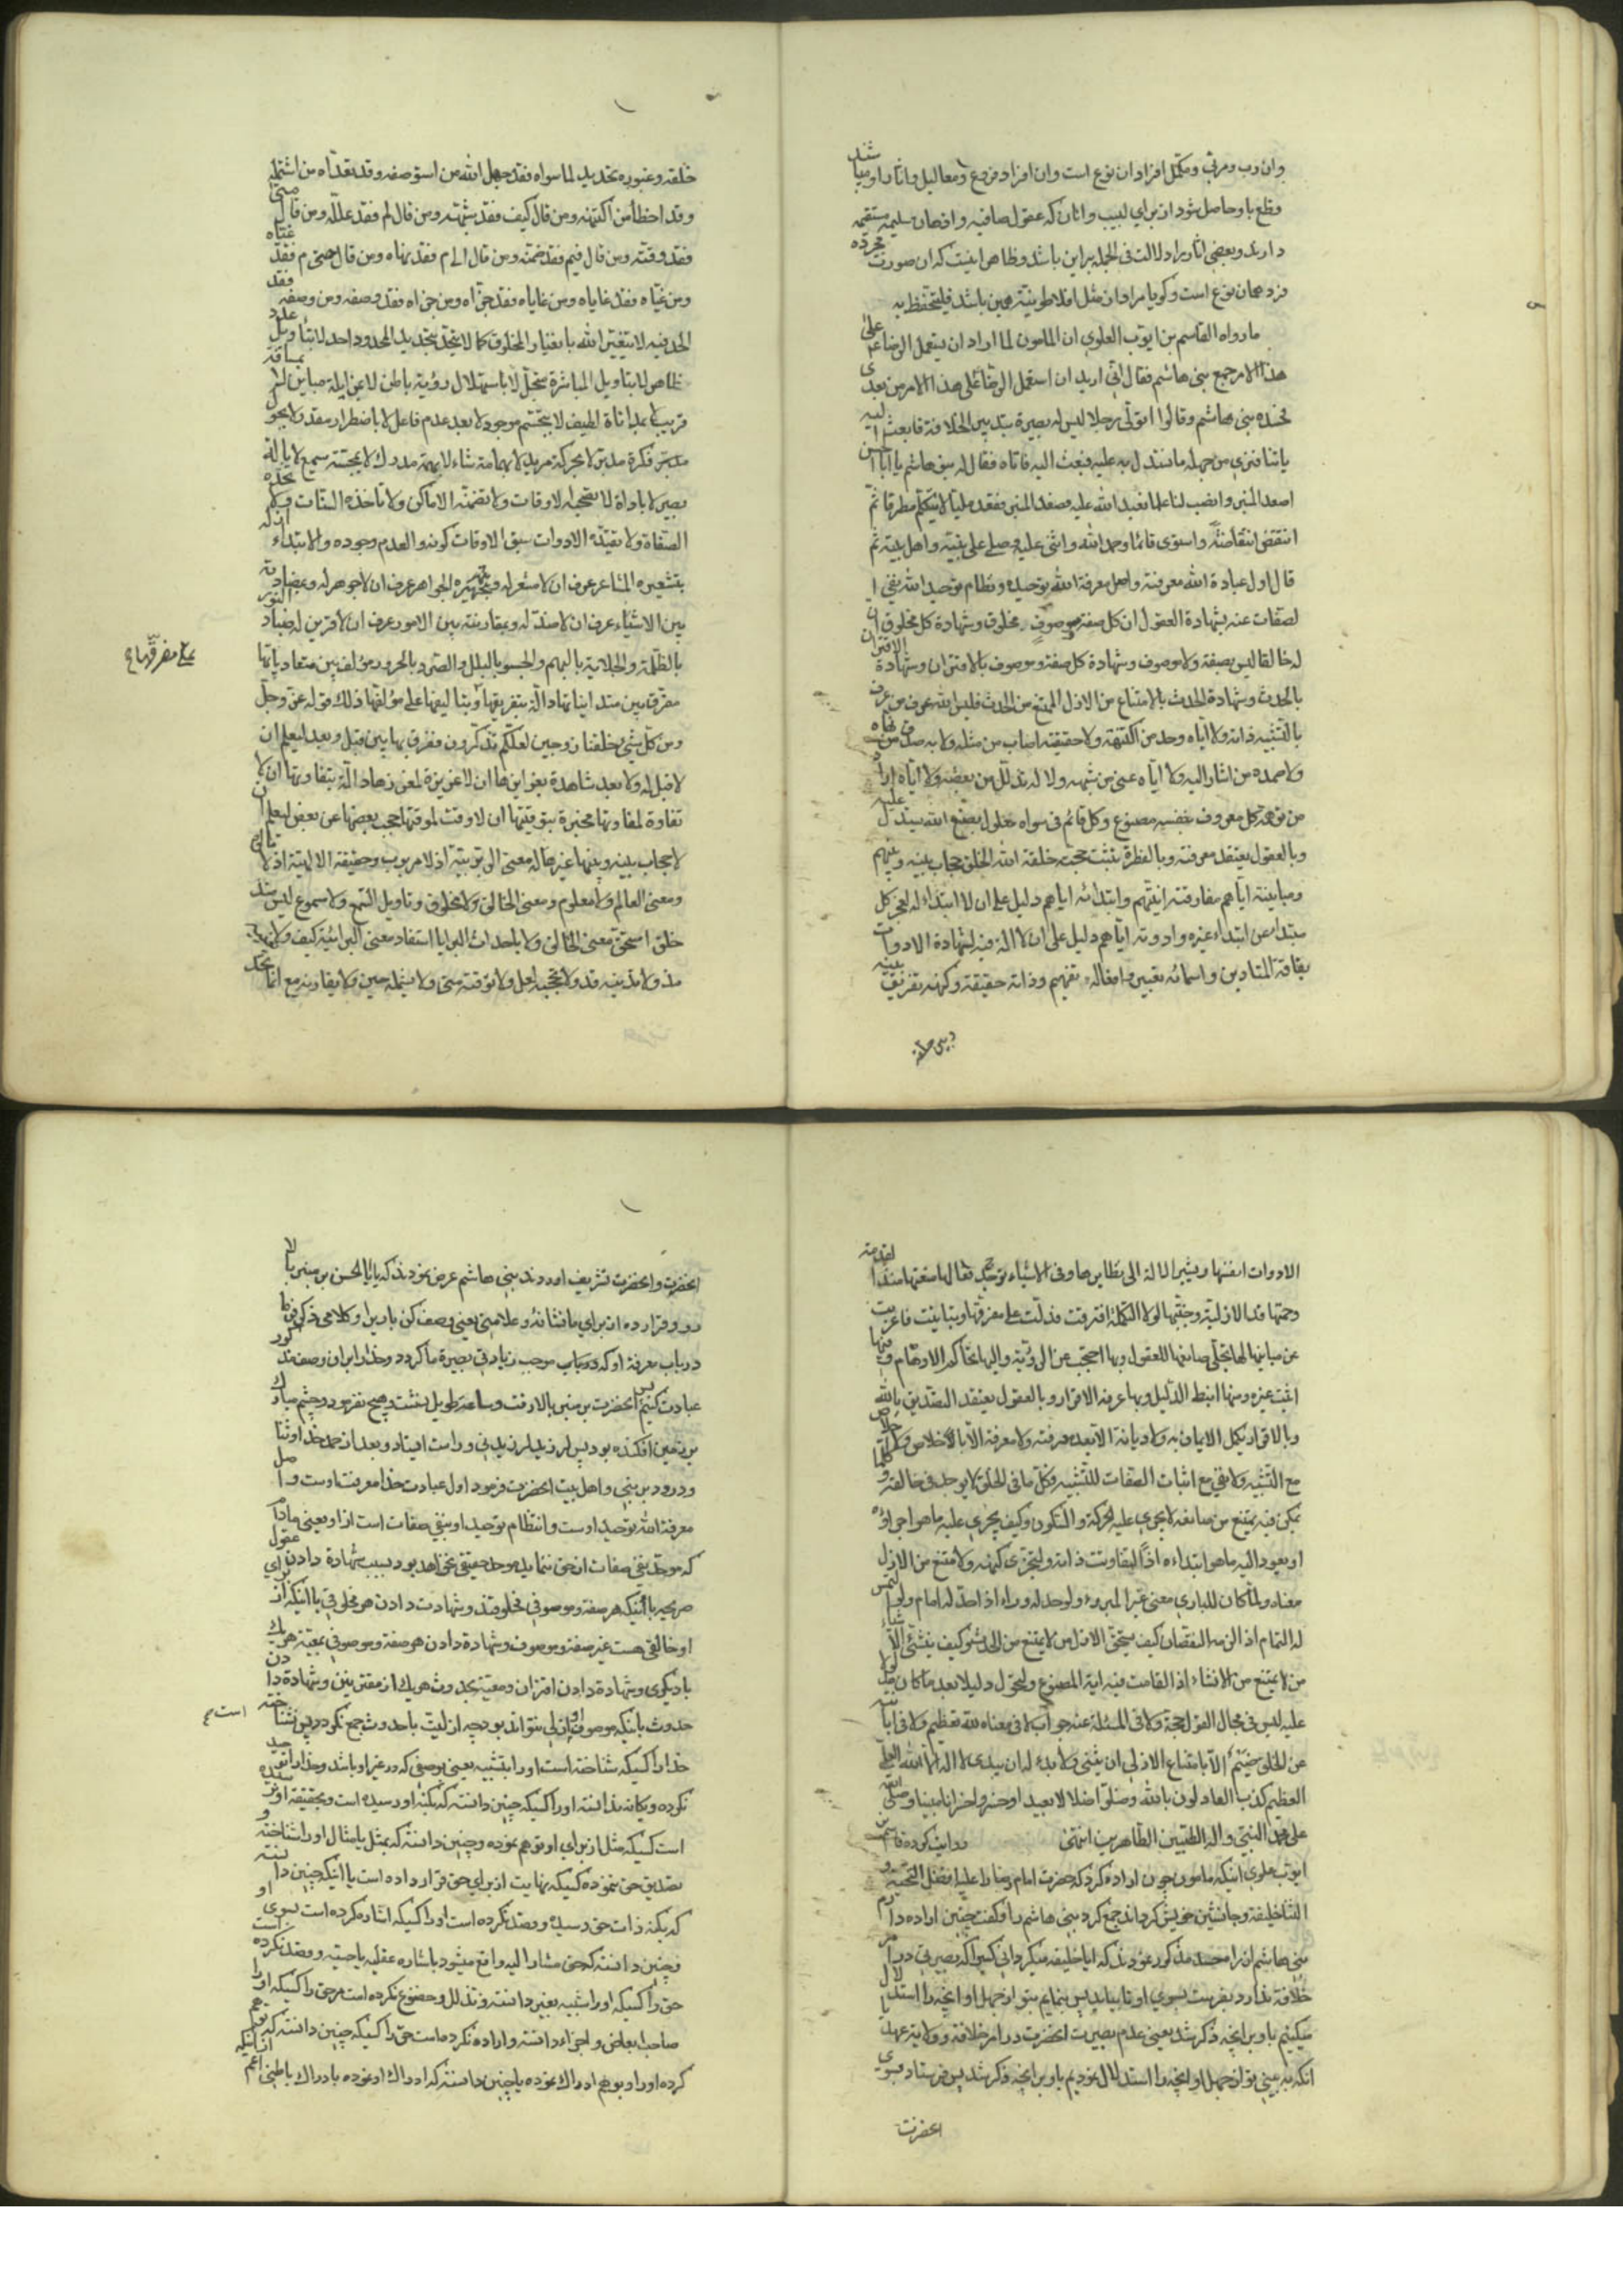 وان رب و مربی و مکمل افراد ان نوع است وان افراد فروع و معالیل و اثار او میباشند
و ظع باو حاصل شود از برای لبیب و انان که عقول صافیه و اذهان سلیمه مستقیمه
دارند و بعضی اثار براد دلالت فی الجمله بر این باشد و ظاهر اینست که ان صورت مجرده
فرد همان نوع است و کویا مراد از مثل افلاطونیة همین باشد فلیتحفظ به
ما رواه القاسم بن ایوب العلوی ان المامون لما اراد ان یستعمل الرضا علی
هذا الامر جمع بنی هاشم فقال انی ارید ان استعمل الرضا علی هذا الامر من بعدی
فحسده بنی هاشم و قالوا اتولی رجلا لیس له بصیرة بتدبیر الخلافة فابعث الیه
یاتنا فنری من جهله ما نستدل به علیه فبعث الیه فاتاه فقال له بنی هاشم یا ابا الحسن
اصعد المنبر و انصب لنا علما نعبد الله علیه فصعد المنبر فقعد ملیا لا یتکلم مطرقا ثم
انتفض انتفاضة و استوی قائما و حمد الله و اثنی علیه و صلی علی نبیه و اهل بیته ثم
قال اول عبادة الله معرفته و اصل معرفة الله توحیده و نظام توحید الله نفی ا
لصفات عنه بشهادة العقول ان کل صفة و موصوف مخلوق و شهادة کل مخلوق ان
له خالقا لیس بصفة و لا موصوف و شهادة کل صفة و موصوف بالاقتران و شهادة الاقتران
بالحدث و شهادة الحدث بالامتناع من الازل الممتنع من الحدث فلیس الله عرف من عرف
بالتشبیه ذاته و لا ایاه وحد من اکتنهه و لا حقیقته اصاب من مثله و لا به صدق من نهاه
و لا صمده من اشار الیه و لا ایاه عنی من شبهه و لا له تذلل من بعضه و لا ایاه اراد
من توهمه کل معروف بنفسه مصنوع و کل قائم فی سواه معلول بصنع الله یستدل علیه
و بالعقول یعتقد معرفته و بالفطرة یثبت حجته خلقة الله الخلق حجاب بینه و بینهم
و مباینته ایاهم مفارقته اینیتهم و ابتدائه ایاهم دلیل علی ان لا ابتداء له لعجز کل
مبتداء عن ابتداء غیره و ادوته ایاهم دلیل علی ان لا الة فیه لشهادة الادوات
بفاقة المتادین و اسمائه تعبیر و افعاله تفهیم و ذاته حقیقة و کنهه تفریق بینه
و بین خلقه
خلقه و غبوره تحدید لما سواه فقد جهل الله من استوصفه و قد تعداه من اشتمله
و قد اخطأ من اکتنهه و من قال کیف فقد شبهه و من قال لم فقد علله و من قال متی
فقد وقته و من قال فیم فقد ضمنه و من قال الی م فقد نهاه و من قال حتی م فقد غیاه
و من غیاه فقد غایاه و من غایاه فقد جزاه و من جزاه فقد وصفه و من وصفه فقد
الحد فیه لا یتغیر الله بانغیار المخلوق کما لا یتحدد بتحدید المحدود احد لا بتأویل عدد
ظاهر لا بتاویل المباشرة متجل لا باستهلال رؤیة باطن لا بمزایلة مباین لا بمسافة
قریب لا بمداناة لطیف لا بتجسم موجود لا بعد عدم فاعل لا باضطرار مقدر لا بجول
فکرة مدبر لا بحرکة مرید لا بهمامة شاء لا بهمة مدرک لا بمجسة سمیع لا بالة
بصیر لا باداة لا تصحبه الاوقات و لا تضمنه الاماکن و لا تاخذه السنات و لا تحده
الصفاة و لا تقیده الادوات سبق الاوقات کونه و العدم وجوده و الابتداء ازله
بتشعیره المشاعر عرف ان لا مشعر له و بتجهیره الجواهر عرف ان لا جوهر له و بمضادته
بین الاشیاء عرف ان لا ضد له و بمقارنته بین الامور عرف ان لا قرین له ضاد النور
بالظلمة و الجلایة بالبهم و الجسو بالبلل و الصرد بالحرور مؤلف بین متعادیاتها
مفرق بین متدانیاتها دالة بتفریقها و بتالیفها علی مؤلفها ذلک قوله عز و جل
علی مفرقها
و من کل شیء خلقنا زوجین لعلکم تذکرون ففرق بها بین قبل و بعد لیعلم ان
لا قبل له و لا بعد شاهدة بغرایزها ان لا غریزة لمغرزها دالة بتفاوتها ان لا
تفاوة لمفاوتها مخبرة بتوقیتها ان لا وقت لموقتها حجب بعضها عن بعض لیعلم ان
لا حجاب بینه و بینها غیرها له معنی الربوبیة اذ لا مربوب و حقیقة الالهیة اذ لا مالوه
و معنی العالم و لا معلوم و معنی الخالق و لا مخلوق و تاویل السمع و لا مسموع لیس منذ
خلق استحق معنی الخالق و لا باحداث البرایا استفاد معنی البرائیة کیف و لا تغیبه
مذ و لا تدنیه قد و لا تحجبه لعل و لا توقته متی و لا یشمله حین و لا یقارنه مع انما تحد
الادوات انفسها و یشیر الالة الی نظایرها و فی الاشیاء یوجد فعالها منعتها منذ القدمة
و حمتها قد الازلیة و جنبتها لولا التکملة افترقت فدلت علی مفرقها و تباینت فاعربت
عن مباینها لها تجلی صانعها للعقول و بها احتجب عن الرؤیة و الیها تحاکم الاوهام و فیها
اثبت غیره و منها انبط الدلیل و بها عرفه الاقرار و بالعقول یعتقد التصدیق بالله
و بالاقرار یکمل الایمان به و لا دیانة الا بعد معرفته و لا معرفة الا بالاخلاص و لا اخلاص
مع التشبیه و لا نفی مع اثبات الصفات للتشبیه فکل ما فی الخلق لا یوجد فی خالقه و کلما
یمکن فیه یمتنع من صانعه لا یجری علیه الحرکة و السکون و کیف یجری علیه ما هو اجراؤه
او یعود الیه ما هو ابتداءه اذا لتفاوتت ذاته و لتجزی کنهه و لامتنع من الازل
معناه و لما کان للباری معنی غیر المبروء و لو حد له وراء اذا حد له امام و لو التمس
له التمام اذا لزمه النقصان کیف یستحق الازل من لا یمتنع من الحدث و کیف ینشئ الاشیاء
من لا یمتنع من الانشاء اذا لقامت فیه ایة المصنوع و لتحول دلیلا بعد ما کان مدلولا
علیه لیس فی مجال القول حجة و لا فی المسئلة عنه جواب و لا فی معناه لله تعظیم و لا فی ابانته
عن الخلق ضیم الا بامتناع الازلی ان یثنی و لا بدء له ان یبدی لا اله الا الله العلی
العظیم کذب العادلون بالله و ضلوا ضلالا بعیدا و خسروا خسرانا مبینا و صلی الله
علی محمد النبی و اله الطیبین الطاهرین انتهی روایت کرده قاسم بن
ایوب علوی اینکه مامون چون اراده کرد که حضرت امام رضا را علیه افضل التحیة و
الثنا خلیفه و جانشین خویش کرداند جمع کرد بنی هاشم را و کفت چنین اراده دارم
بنی هاشم ان را محسد مذکور نمودند که ایا خلیفه میکردانی کسی را که بصیرتی در امر
خلافة ندارد بفرست بسوی او تا بیاید پس بنمایم بتو از جهل او انچه را استدلال
میکنیم باو بر انچه ذکر شد یعنی عدم بصیرت انحضرت در امر خلافة و ولایة عهد تا
انکه به بینی تو از جهل او انچه را استدلال نمودیم باو بر انچه ذکر شد پس فرستاد بسوی
انحضرت
انحضرت و انحضرت تشریف اوردند بنی هاشم عرض نمودند که یا ابا الحسن بر منبر بالا
رو و قرار ده از برای ما نشانهٔ و علامتی یعنی وصف کن باری را و کلامی ذکر فرما
در باب معرفة او که در باب موجب زیادتی بصیرة ما کردد و خدا را بر ان وصف مذکور
عبادت کنیم پس انحضرت بر منبر بالا رفت و ساعة طویل نشست و هیچ نفرمود و چشم مبارک
بر زمین افکنده بود پس لرزید لرزیدنی و راست ایستاد و بعد از حمد خدا و ثنا
و درود بر نبی و اهل بیت انحضرت فرمود اول عبادت خدا معرفت اوست و اصل
معرفة الله توحید اوست و انتظام توحید او بنفی صفات است از او یعنی مادام
که موحد نفی صفات از حق ننماید موحد حقیقی نخواهد بود بسبب شهادة دادن عقول
صریحه باینکه هر صفة و موصوفی مخلوقند و شهادت دادن هر مخلوقی باینکه از برای
او خالقی هست غیر صفة و موصوف و شهادة دادن هر صفة و موصوفی بمعیة هر یک
با دیکری و شهادة دادن اقتران و معیة بحدوث هر یک از مقترنین و شهادة دادن
حدوث باینکه موصوف باو ازلی نتواند بود چه ازلیت با حدوث جمع نکردد پس نشناخته است
خدا را کسیکه شناخته است او را بتشبیه یعنی بوصفی که در غیر او باشد و خدا را توحید
نکرده و یکانه ندانسته او را کسیکه چنین دانسته که بکنه او رسیده است و بحقیقة او نرسیده
است کسیکه مثل از برای او توهم نموده و چنین دانسته که بمثل یا مثال او را شناخته و
تصدیق حق ننموده کسیکه نهایت از برای حق قرار داده است یا اینکه چنین دانسته
که بکنه ذات حق رسیده و قصد نکرده است او را کسیکه اشاره کرده است بسوی او
و چنین دانسته که حق مشار الیه واقع میشود باشاره عقلیه یا حسیه و قصد نکرده است
حق را کسیکه او را شبیه بغیر دانسته و تذلل و خضوع نکرده است مر حق را کسیکه او را
صاحب ابعاض و اجزاء دانسته و اراده نکرده است حق را کسیکه چنین دانسته که توهم
کرده او را و بوهم ادراک نموده یا چنین دانسته که ادراک او نموده بادراک باطنی اعم از اینکه